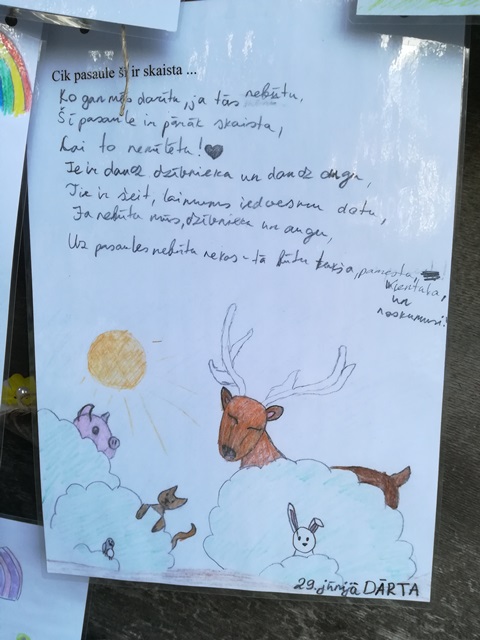 Cik pasaule šī ir skaista ...
Ko gan mēs darītu, ja tās nebūtu,
Šī pasaule ir pārāk skaista,
Lai to nemīlētu!
Te ir daudz dzīvnieku un daudz augu,
Tie ir šeit, lai mums iedvesmu dotu,
Ja nebūtu mūs, dzīvnieku un augu,
Uz pasaules nebūtu nekas - tā būtu tukša, pamesta,
vientuļa,
un
noskumusi!
29. jūnijā DĀRTA